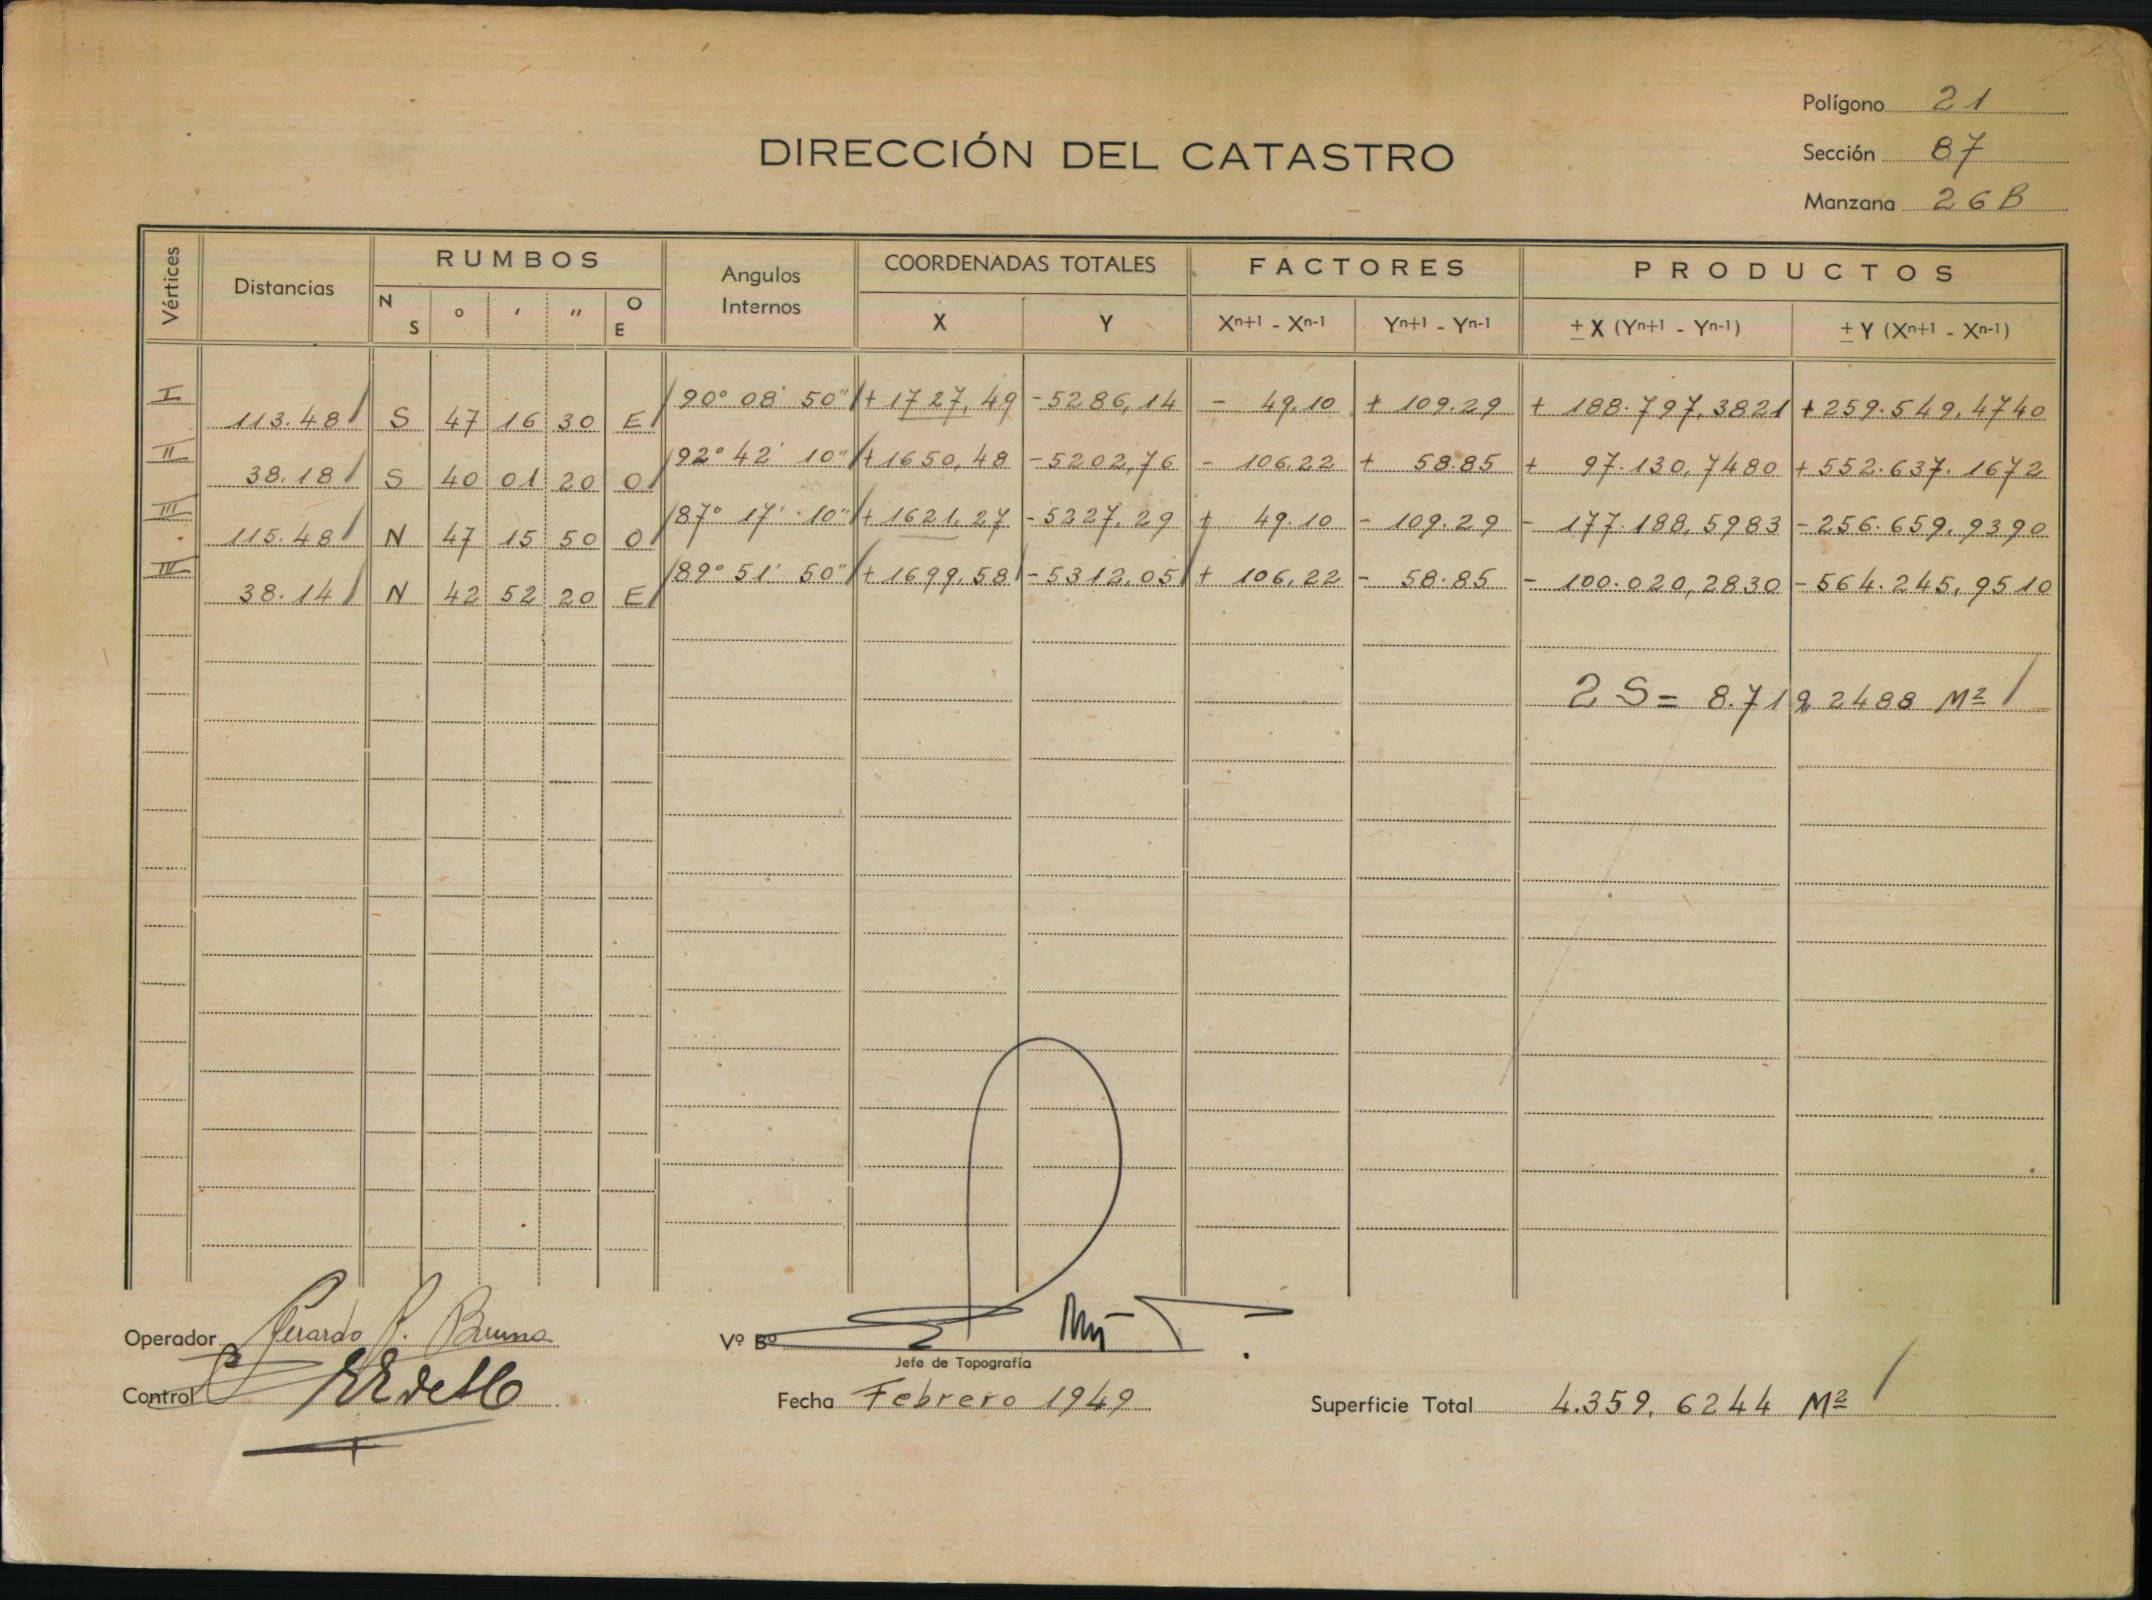 Polígono 21
DIRECCIÓN DEL CATASTRO
Sección 87
Manzana 26B
Vértices Distancias RUMBOS Angulos Internos COORDENADAS TOTALES FACTORES PRODUCTOS
N S ° ' " O E X Y Xn+1 - Xn-1 Yn+1 - Yn-1 ± X (Yn+1 - Yn-1) ± Y (Xn+1 - Xn-1)
I 90° 08' 50" + 1727,49 -5286,14 - 49.10 + 109.29 + 188.797,3821 + 259.549,4740
113.48 S 47 16 30 E
II 92° 42' 10" + 1650,48 -5202,76 - 106.22 + 58.85 + 97.130,7480 + 552.637.1672
38.18 S 40 01 20 O
III 87° 17' 10" + 1621,27 -5227,29 + 49.10 - 109.29 - 177.188,5983 - 256.659,9390
115.48 N 47 15 50 O
IV 89° 51' 50" + 1699,58 -5312,05 + 106,22 - 58.85 - 100.020,2830 - 564.245,9510
38.14 N 42 52 20 E
2 S = 8.719,2488 M²
Operador Gerardo P. Bruma
Vº Bº
Jefe de Topografía
Control
Fecha Febrero 1949
Superficie Total 4.359,6244 M²